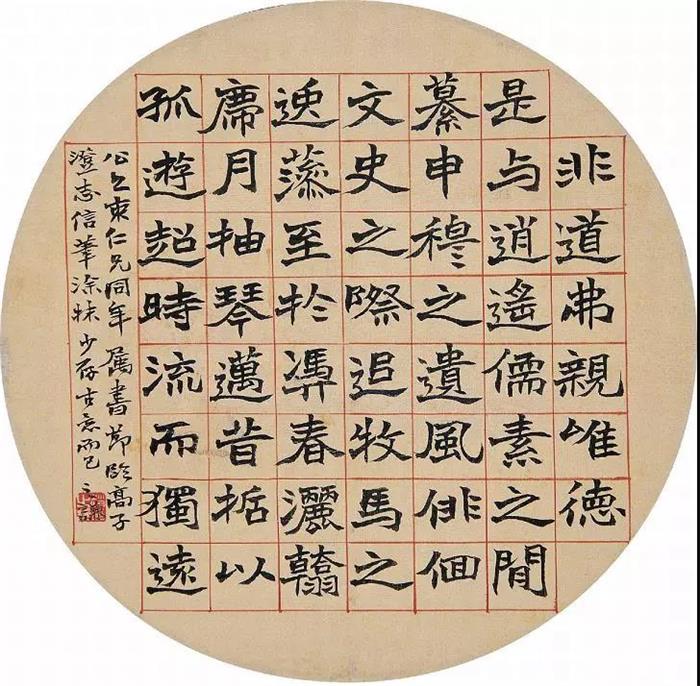 非道弗親唯德
是与逍遙儒素之閒
纂申穆之遺風俳佪
文史之際追牧馬之
逸藻至於馮春灑翰
席月抽琴邁昔哲以
孤遊超時流而獨遠
仁兄同年屬書節臨高子
澄志信筆涂抹少存古意而已